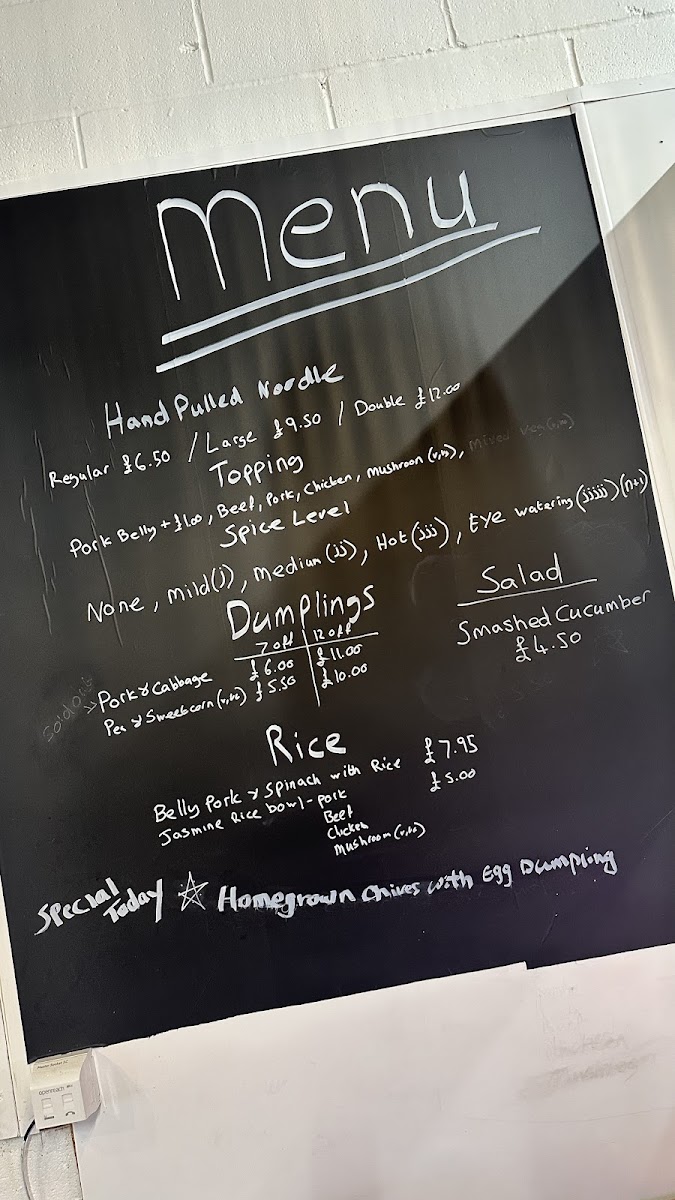 Menu
Hand Pulled Noodle
Regular £6.50 / Large £9.50 / Double £12.00
Topping
Pork Belly + £1.00, Beef, Pork, Chicken, Mushroom (v,ve), Mixed Veg (v,ve)
Spice Level
None, Mild (j), Medium (jj), Hot (jjj), Eye watering (jjjjj) (n+1)
Dumplings
7 off 12 off
Pork & Cabbage £6.00 £11.00
Sold Out
Pea & Sweetcorn (v,ve) £5.50 £10.00
Salad
Smashed Cucumber
£4.50
Rice
Belly Pork & Spinach with Rice £7.95
Jasmine Rice bowl - Pork £5.00
Beef
Chicken
Mushroom (v,ve)
Special Today ☆ Homegrown Chives with Egg Dumpling
openreach